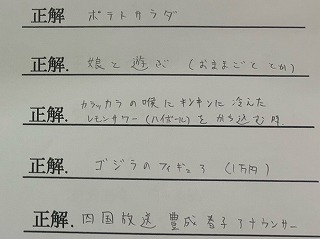 正解 ポテトサラダ
正解. 娘と遊ぶ (おままごと とか)
正解. カラッカラの喉にキンキンに冷えた
レモンサワー(ハイボール)をかち込む時.
正解. ゴジラのフィギュア (1万円)
正解. 四国放送 豊成春子アナウンサー